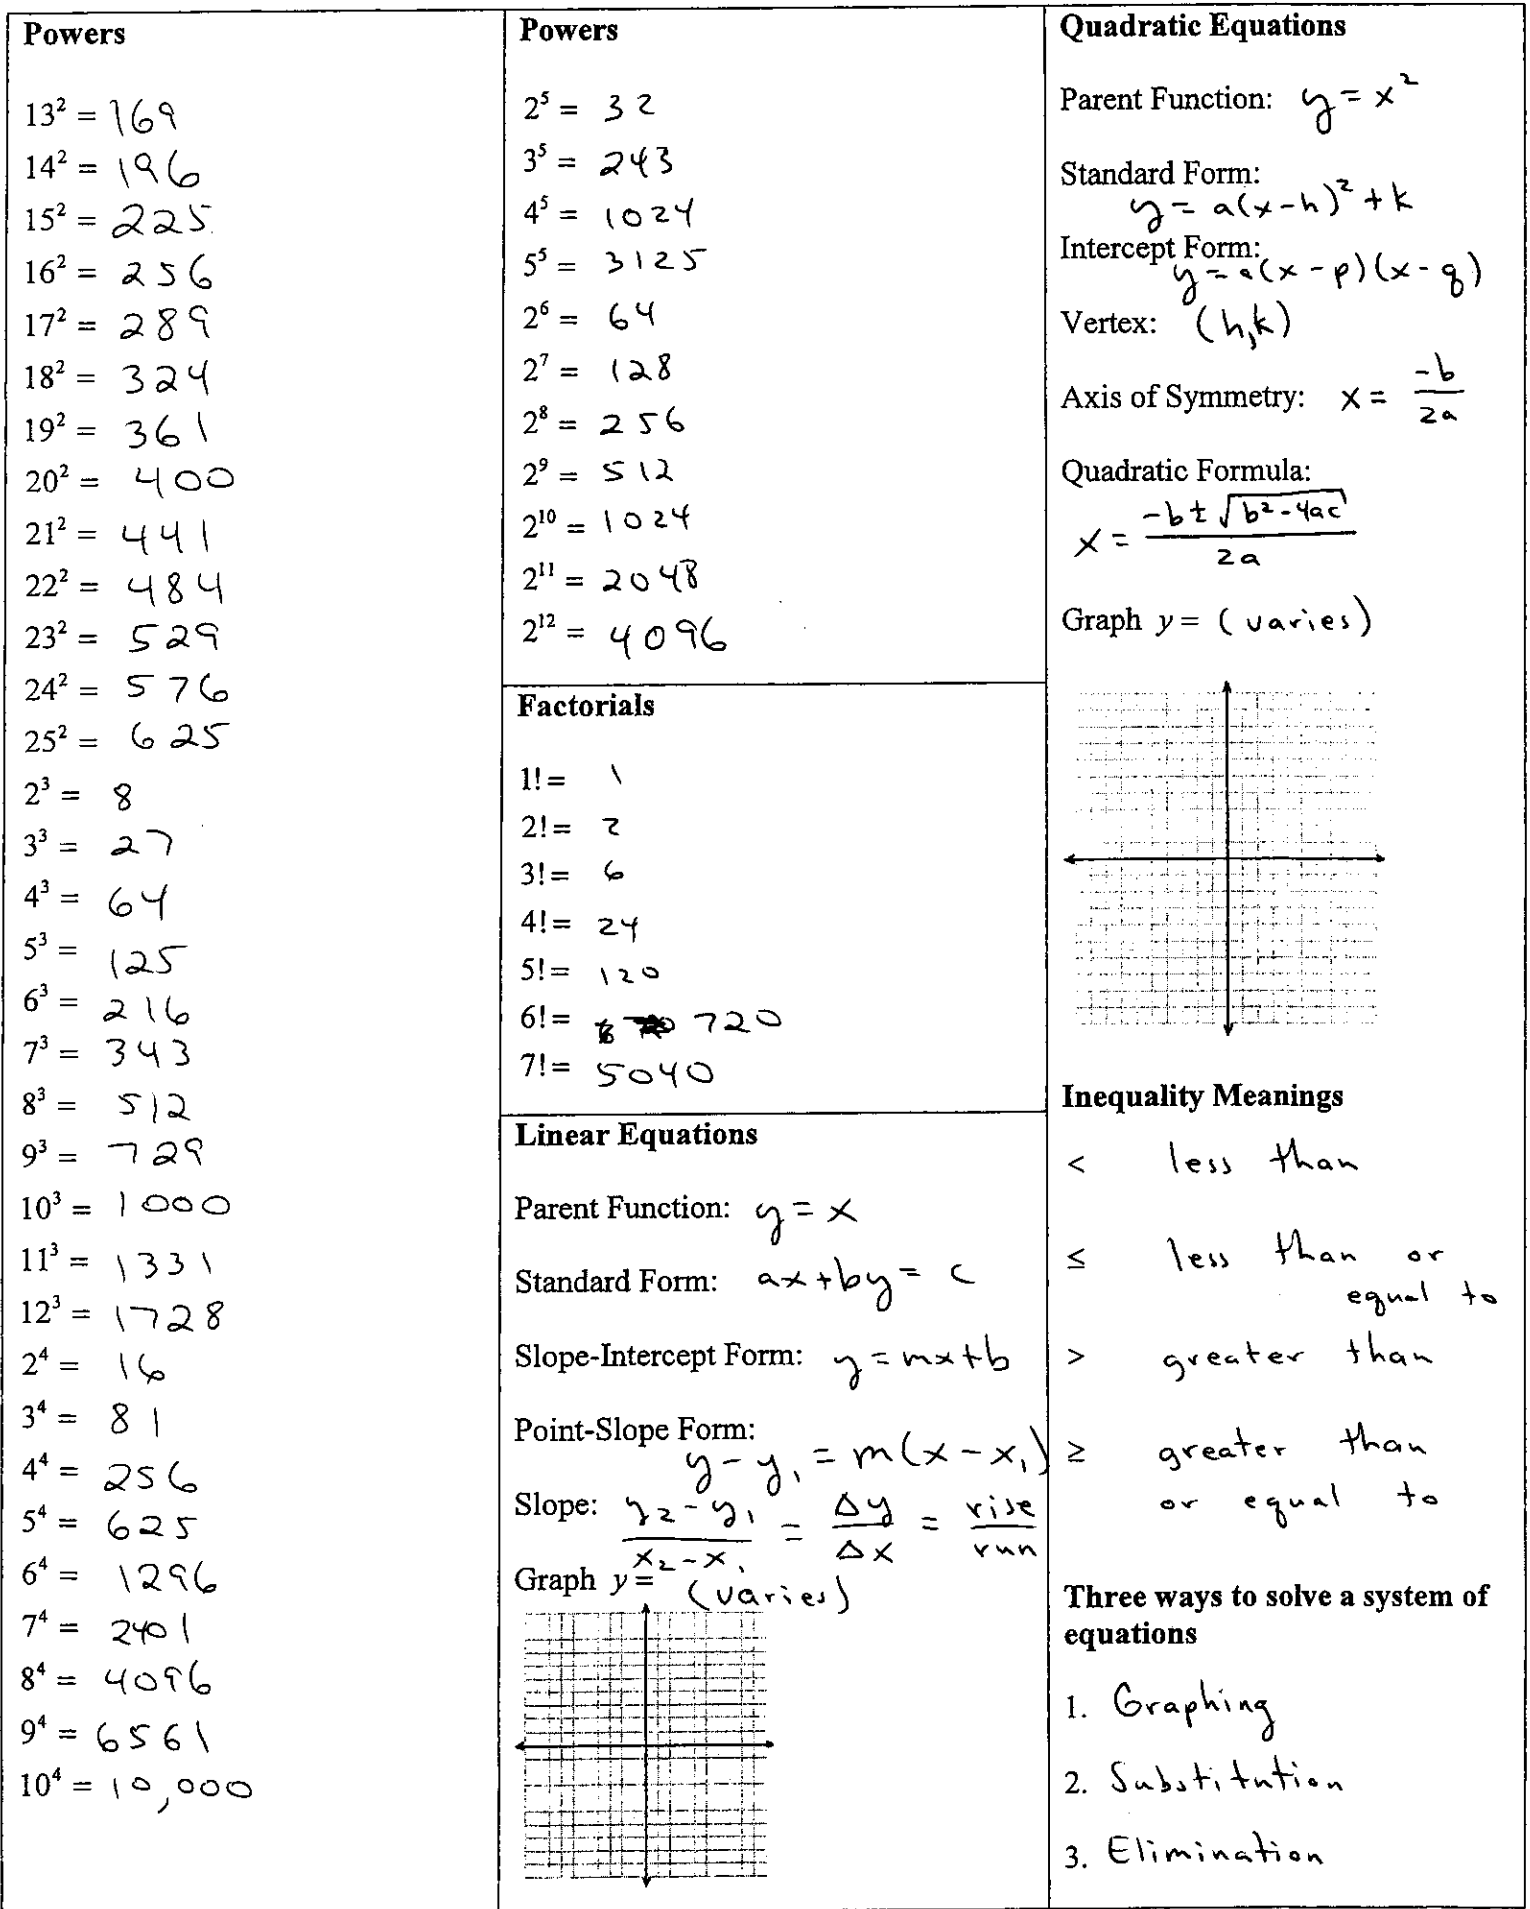 Powers
13² = 169
14² = 196
15² = 225
16² = 256
17² = 289
18² = 324
19² = 361
20² = 400
21² = 441
22² = 484
23² = 529
24² = 576
25² = 625
2³ = 8
3³ = 27
4³ = 64
5³ = 125
6³ = 216
7³ = 343
8³ = 512
9³ = 729
10³ = 1000
11³ = 1331
12³ = 1728
2⁴ = 16
3⁴ = 81
4⁴ = 256
5⁴ = 625
6⁴ = 1296
7⁴ = 2401
8⁴ = 4096
9⁴ = 6561
10⁴ = 10,000
Powers
2⁵ = 32
3⁵ = 243
4⁵ = 1024
5⁵ = 3125
2⁶ = 64
2⁷ = 128
2⁸ = 256
2⁹ = 512
2¹⁰ = 1024
2¹¹ = 2048
2¹² = 4096
Factorials
1! = 1
2! = 2
3! = 6
4! = 24
5! = 120
6! = 720
7! = 5040
Linear Equations
Parent Function: y = x
Standard Form: ax + by = c
Slope-Intercept Form: y = mx + b
Point-Slope Form:
y - y₁ = m(x - x₁)
Slope: (y₂ - y₁)/(x₂ - x₁) = Δy/Δx = rise/run
Graph y = (varies)
Quadratic Equations
Parent Function: y = x²
Standard Form:
y = a(x-h)² + k
Intercept Form:
y = a(x - p)(x - q)
Vertex: (h,k)
Axis of Symmetry: x = -b/2a
Quadratic Formula:
x = (-b ± √(b² - 4ac))/2a
Graph y = (varies)
Inequality Meanings
< less than
≤ less than or
equal to
> greater than
≥ greater than
or equal to
Three ways to solve a system of
equations
1. Graphing
2. Substitution
3. Elimination